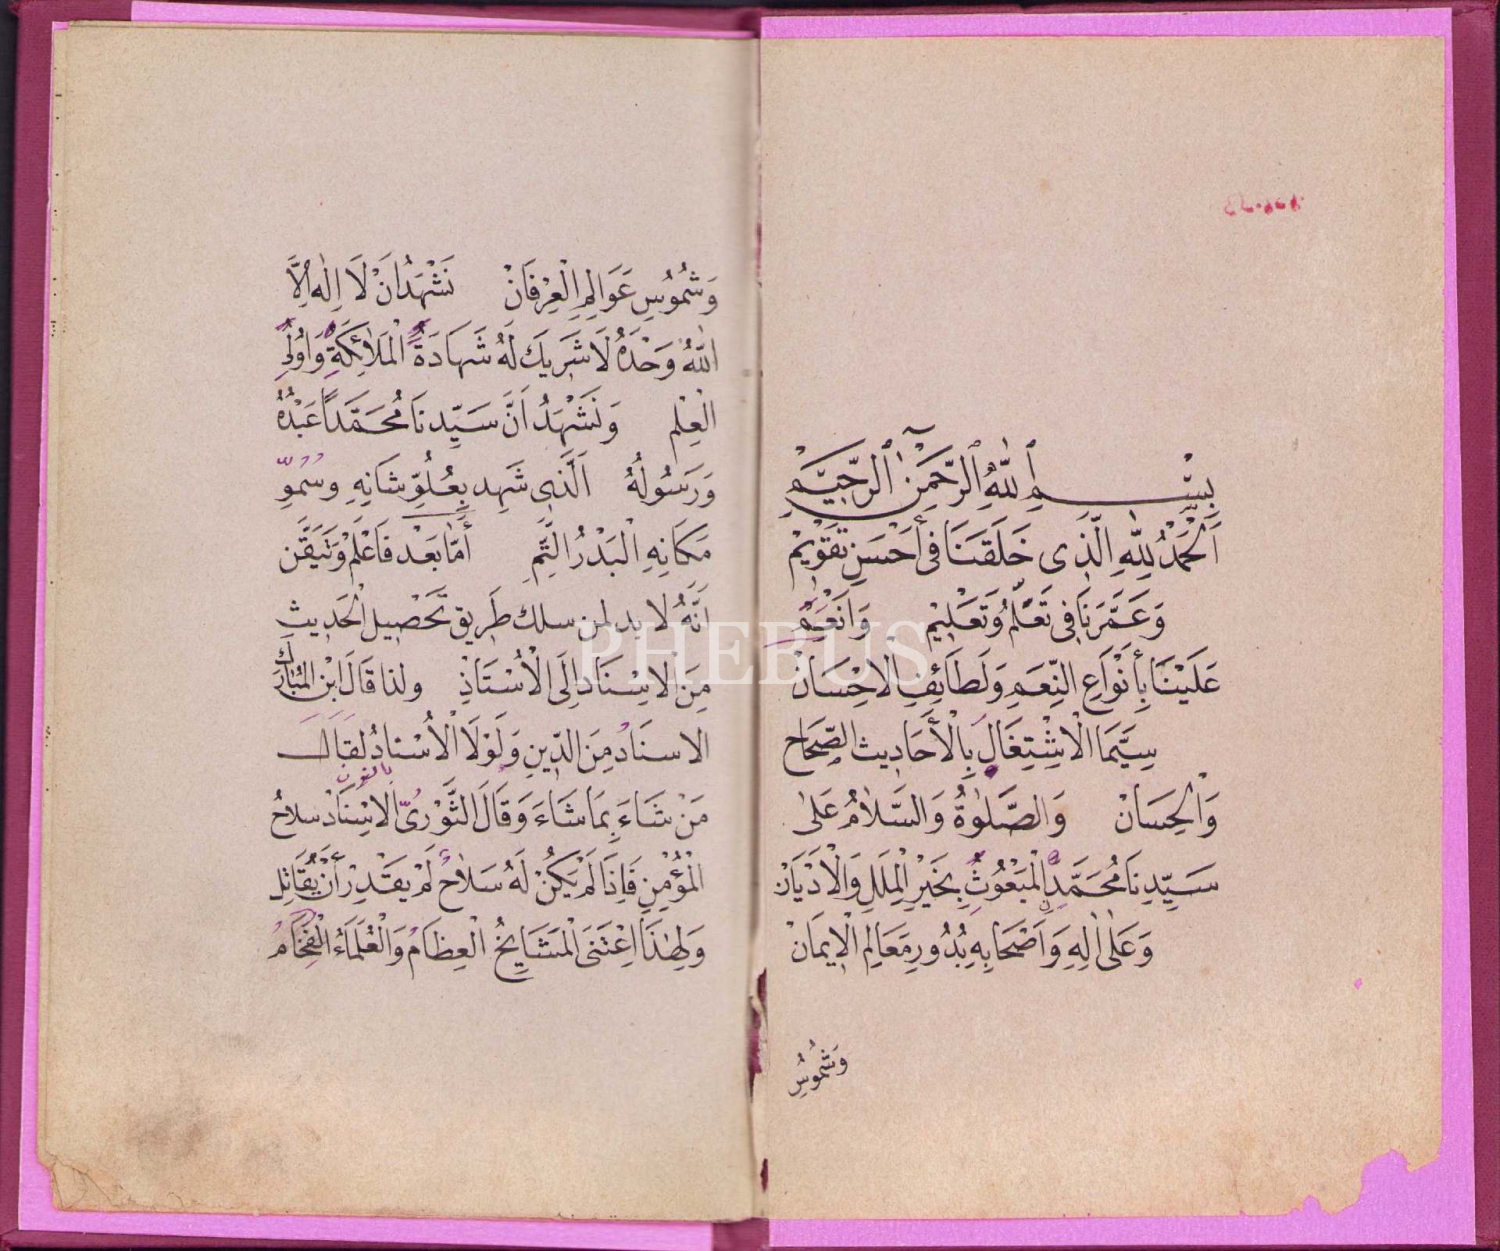 بِسْمِ ٱللّٰهِ ٱلرَّحْمٰنِ ٱلرَّحِيمِ
اَلْحَمْدُ لِلّٰهِ الَّذِى خَلَقَنَا فِى أَحْسَنِ تَقْوِيْمٍ
وَعَمَّرَنَا فِى تَعَلُّمٍ وَتَعْلِيْمٍ وَاَنْعَمَ
عَلَيْنَا بِأَنْوَاعِ النِّعَمِ وَلَطَائِفِ الْاِحْسَانْ
سِيَّمَا الْاِشْتِغَالِ بِالْأَحَادِيث الصِّحَاح
وَالْحِسَانْ وَالصَّلٰوةُ وَالسَّلَامُ عَلىٰ
سَيِّدِنَا مُحَمَّدٍ الْمَبْعُوثِ بِخَيْرِ الْمِلَلِ وَالْاَدْيَانْ
وَعَلىٰ اٰلِهِ وَاَصْحَابِهِ بُدُورِ مَعَالِمِ الْاِيمَانْ
وَشُمُوسِ
وَشُمُوسِ عَوَالِمِ الْعِرْفَانْ نَشْهَدُ اَنْ لَا اِلٰهَ اِلَّا
اللّٰهُ وَحْدَهُ لَا شَرِيكَ لَهُ شَهَادَةَ الْمَلَائِكَةِ وَاُولِى
الْعِلْمِ وَنَشْهَدُ اَنَّ سَيِّدَنَا مُحَمَّدًا عَبْدُهُ
وَرَسُولُهُ اَلَّذِى شَهِد بِعُلُوِّ شَانِهِ وسُمُوِّ
مَكَانِهِ الْبَدْرُ التَّمِّ أَمَّا بَعْد فَاعْلَمْ وَتَيَقَّن
اَنَّهُ لا بد لمن سلك طَرِيق تَحْصِيلِ الْحَدِيثِ
مِنَ الْاِسْنَادِ اِلَى الْأُسْتَاذِ ولذا قَالَ ابْن الْمُبَارَك
الاسنَادُ مِنَ الدِّينِ وَلَوْلَا الْأُسْنادُ لَقَالَ
بالنون
مَنْ شَاءَ بِمَا شَاءَ وَقَالَ الثَّوْرِىّ الْاِسْنَادْ سلاحُ
الْمُؤْمِنِ فَاِذَا لَمْ يَكُنْ لَهُ سَلَاحٌ لَمْ يَقْدِرْ أَنْ يُقَاتِل
وَلِهٰذَا اِعْتَنَى الْمَشَايِخُ الْعِظَامُ وَالْعُلَمَاءُ الْفِخَامُ
PHEBUS